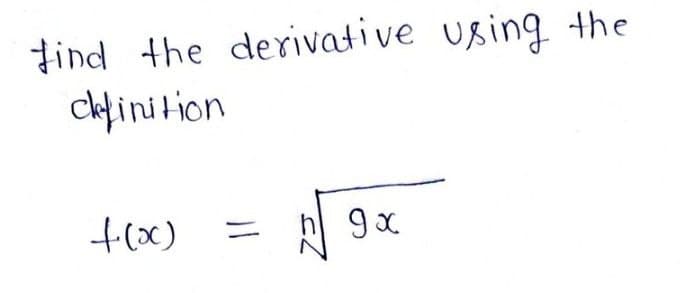 find the derivative using the
definition
f(x) = ⁿ√9x